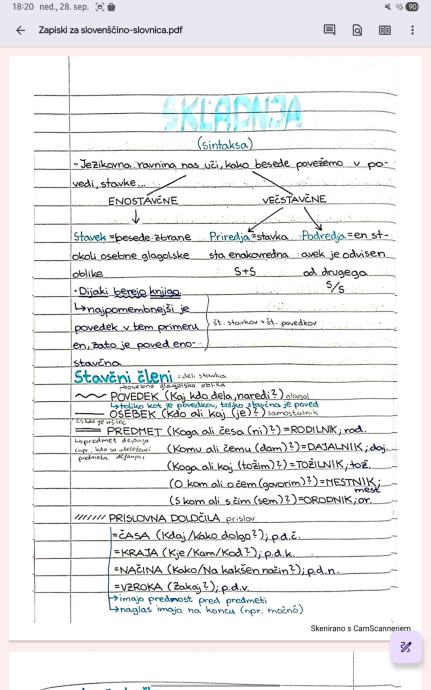 18:20 ned., 28. sep.
90
Zapiski za slovenščino-slovnica.pdf
SKLADNJA
(sintaksa)
-Jezikovna ravnina nas uči, kako besede povežemo v po-
vedi, stavke...
ENOSTAVČNE VEČSTAVČNE
Stavek=besede zbrane Priredja=stavka Podredja=en st-
okoli osebne glagolske sta enakovredna avek je odvisen
oblike S+S od drugega
S/S
·Dijaki berejo knjigo.
najpomembnejši je
povedek v tem primeru št. stavkov = št. povedkov
en, zato je poved eno-
stavčna
Stavčni členi =deli stavka
osebna glagolska oblika
POVEDEK (Kaj kdo dela, naredi?) glagol
toliko kot je povedkov, toliko stavčna je poved
OSEBEK (Kdo ali kaj (je)?) samostalnik
PREDMET (Koga ali česa (ni)?)=RODILNIK, rod.
predmet dejanja
(Komu ali čemu (dam)?)=DAJALNIK; daj.
(Koga ali kaj (tožim)?)=TOŽILNIK; tož.
(O kom ali o čem (govorim)?)=MESTNIK;
mest
(S kom ali s čim (sem)?)=ORODNIK; or.
/////// PRISLOVNA DOLOČILA prislov
=ČASA (Kdaj/kako dolgo?); p.d.č.
=KRAJA (Kje/Kam/Kod?); p.d.k.
=NAČINA (Kako/Na kakšen način?); p.d.n.
=VZROKA (Zakaj?); p.d.v.
imajo prednost pred predmeti
naglas imajo na koncu (npr. močnó)
Skenirano s CamScannerjem